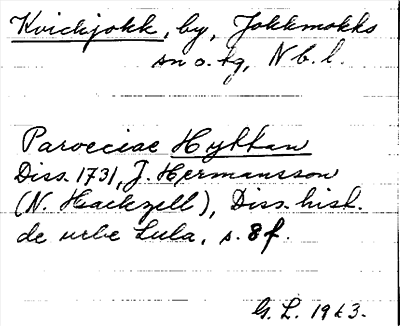 Kvickjokk, by, Jokkmokks
sn o. tg, Nb. l.
Paroeciae Hyttan
Diss. 1731, J. Hermansson
(N. Hackzell), Diss. hist.
de urbe Lula, s. 8 f.
G. L. 1963.